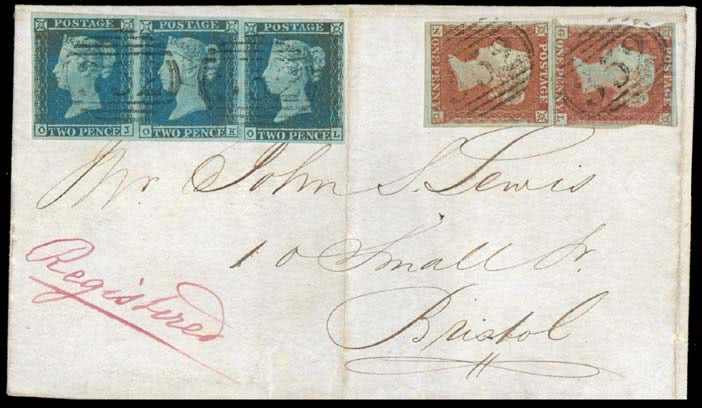 POSTAGE POSTAGE POSTAGE
O TWO PENCE J O TWO PENCE K O TWO PENCE L
POSTAGE
ONE PENNY
POSTAGE
Mr John S. Lewis
10 Small St.
Bristol
Registered